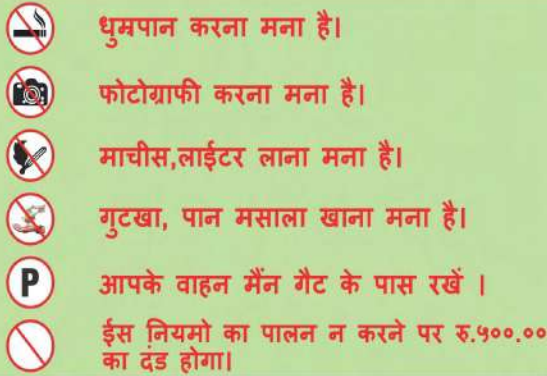 धुम्रपान करना मना है।
फोटोग्राफी करना मना है।
माचीस,लाईटर लाना मना है।
गुटखा, पान मसाला खाना मना है।
P आपके वाहन मैंन गैट के पास रखें ।
ईस नियमो का पालन न करने पर रु.५००.००
का दंड होगा।